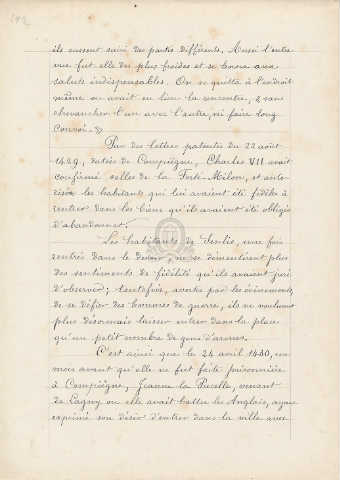 192
ils eussent suivi des partis différents. Aussi l'entre
vue fut elle des plus froides et se borna aux
saluts indispensables. On se quitta à l'endroit
même où avait eu lieu la rencontre, sans
chevaucher l'un avec l'autre, ni faire long
convoi.
Par des lettres patentes du 22 août
1429, datées de Compiègne, Charles VII avait
confirmé celles de la Ferté-Milon, et auto
risé les habitants qui lui avaient été fidèles à
rentrer dans les biens qu'ils avaient été obligés
d'abandonner.
Les habitants de Senlis, une fois
rentrés dans le devoir, ne se démentirent plus
des sentiments de fidélité qu'ils avaient juré
d'observer; toutefois, avertis par les événements
de se défier des hommes de guerre, ils ne voulurent
plus désormais laisser entrer dans la place
qu'un petit nombre de gens d'armes.
C'est ainsi que le 24 avril 1430, un
mois avant qu'elle ne fut faite prisonnière
à Compiègne, Jeanne la Pucelle, venant
de Lagny où elle avait battu les Anglais, ayant
exprimé son désir d'entrer dans la ville avec